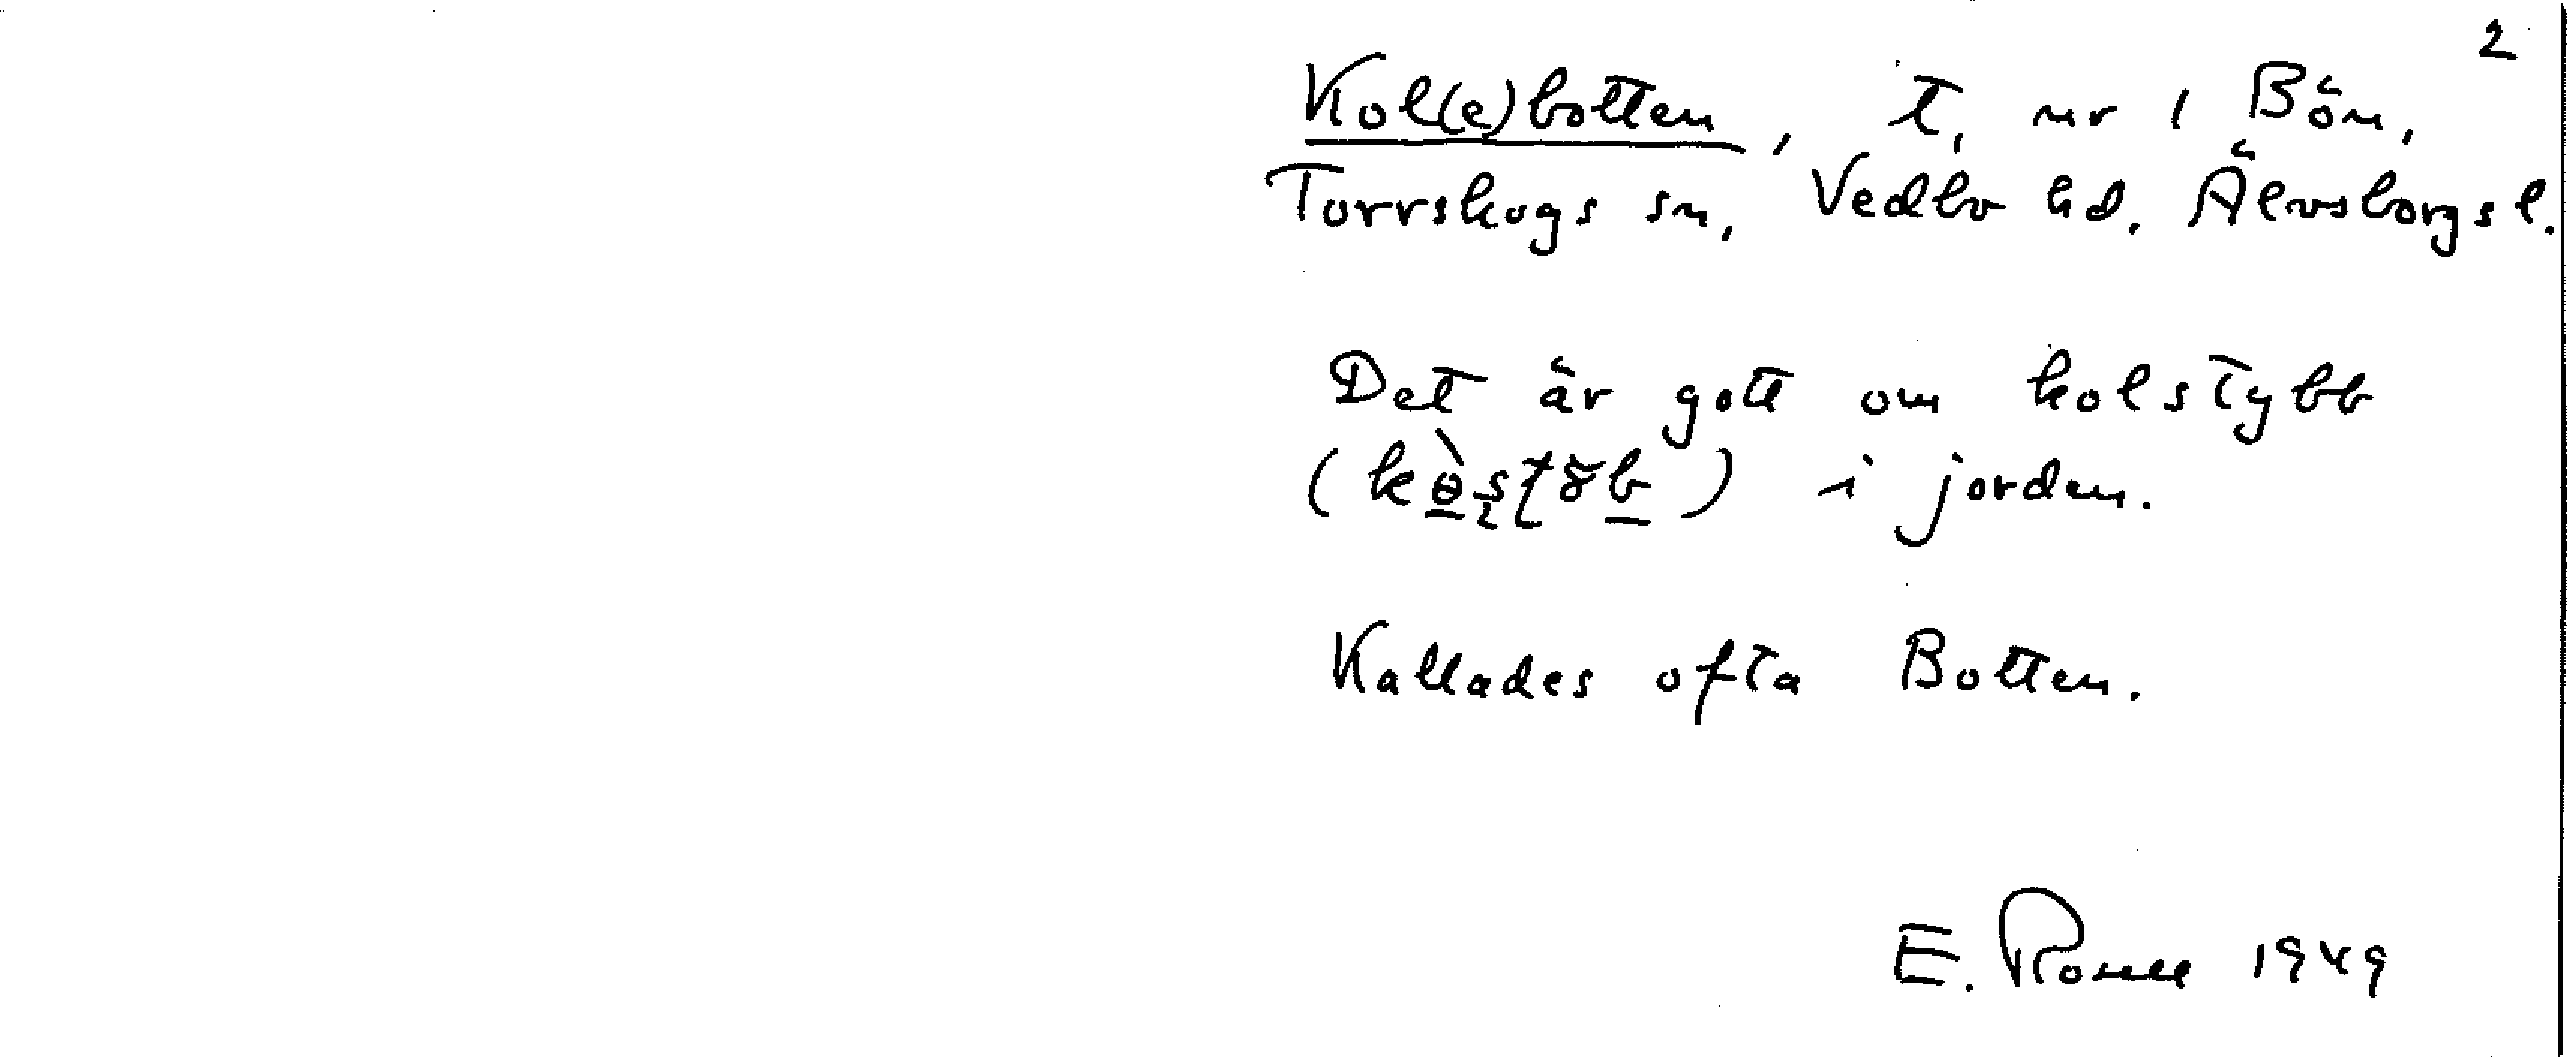 2
Kol(e)botten, t, nr 1 Bön,
Torrskogs sn, Vedbo hd. Älvsborgs l.
Det är gott om kolstybb
( ) i jorden.
Kallades ofta Botten.
E. 1949